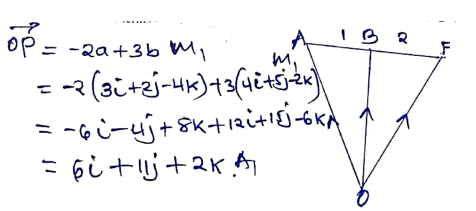 A 1 B 2 P
OP = -2a+3b M1
= -2(3i+2j-4k)+3(4i+5j-2k) M1
= -6i-4j+8k+12i+15j-6k
= 6i+11j+2k A1
O